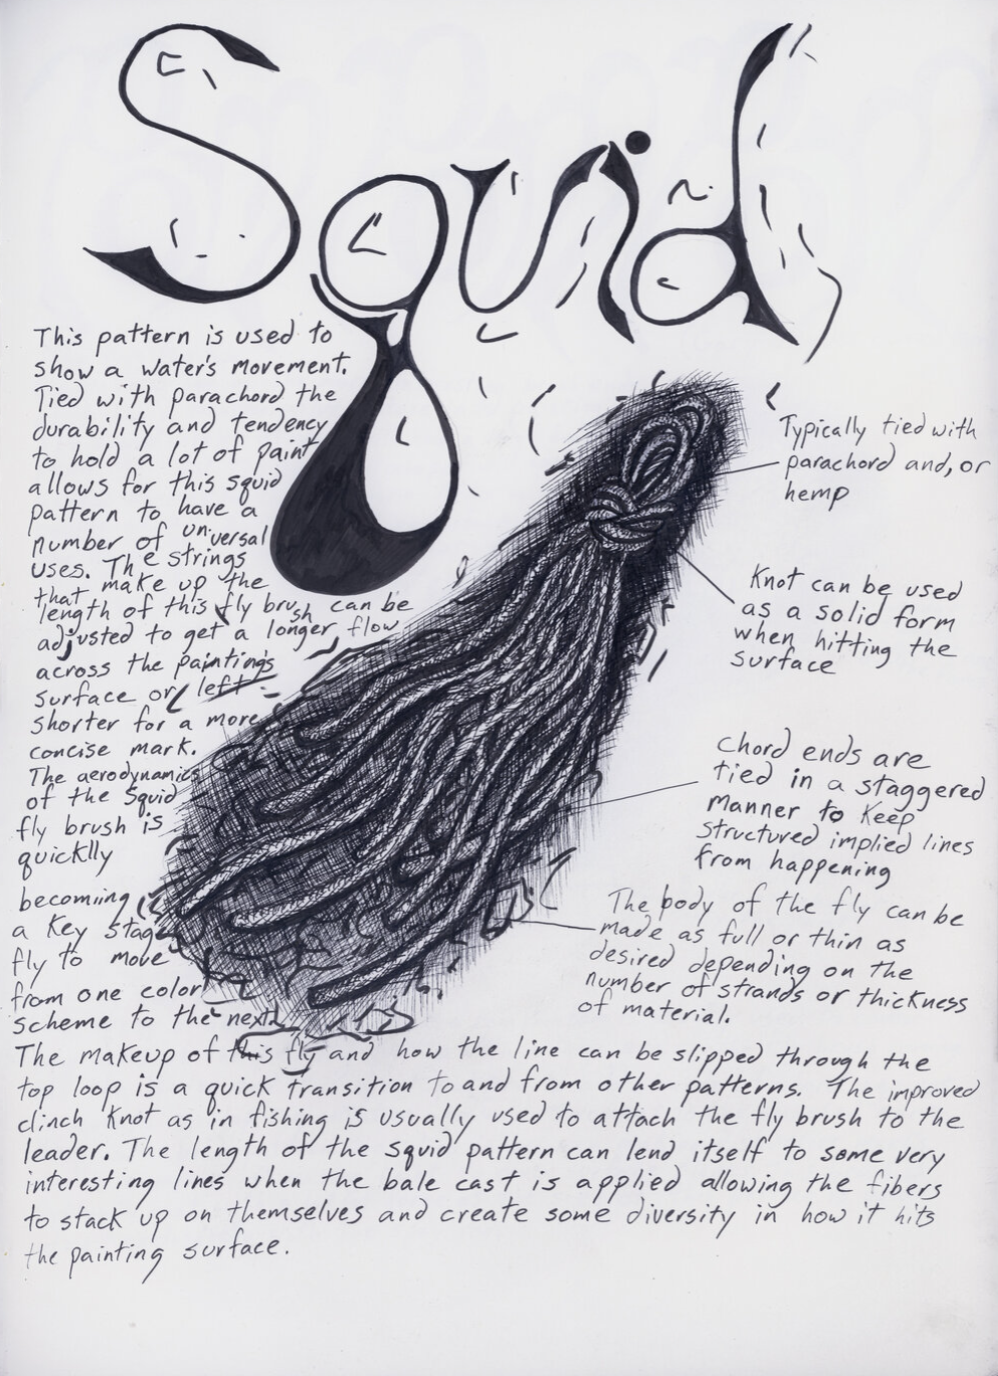 Squid
This pattern is used to
show a water's movement.
Tied with parachord the
durability and tendency
to hold a lot of paint
allows for this squid
pattern to have a
number of universal
uses. The strings
that make up the
length of this fly brush can be
adjusted to get a longer flow
across the paintings
surface or left
shorter for a more
concise mark.
The aerodynamics
of the squid
fly brush is
quicklly
becomiing
a key stage
fly to move
from one color
scheme to the next.
The makeup of this fly and how the line can be slipped through the
top loop is a quick transition to and from other patterns. The improved
clinch knot as in fishing is usually used to attach the fly brush to the
leader. The length of the squid pattern can lend itself to some very
interesting lines when the bale cast is applied allowing the fibers
to stack up on themselves and create some diversity in how it hits
the painting surface.
Typically tied with
parachord and, or
hemp
Knot can be used
as a solid form
when hitting the
surface
Chord ends are
tied in a staggered
manner to keep
structured implied lines
from happening
The body of the fly can be
made as full or thin as
desired depending on the
number of strands or thickness
of material.